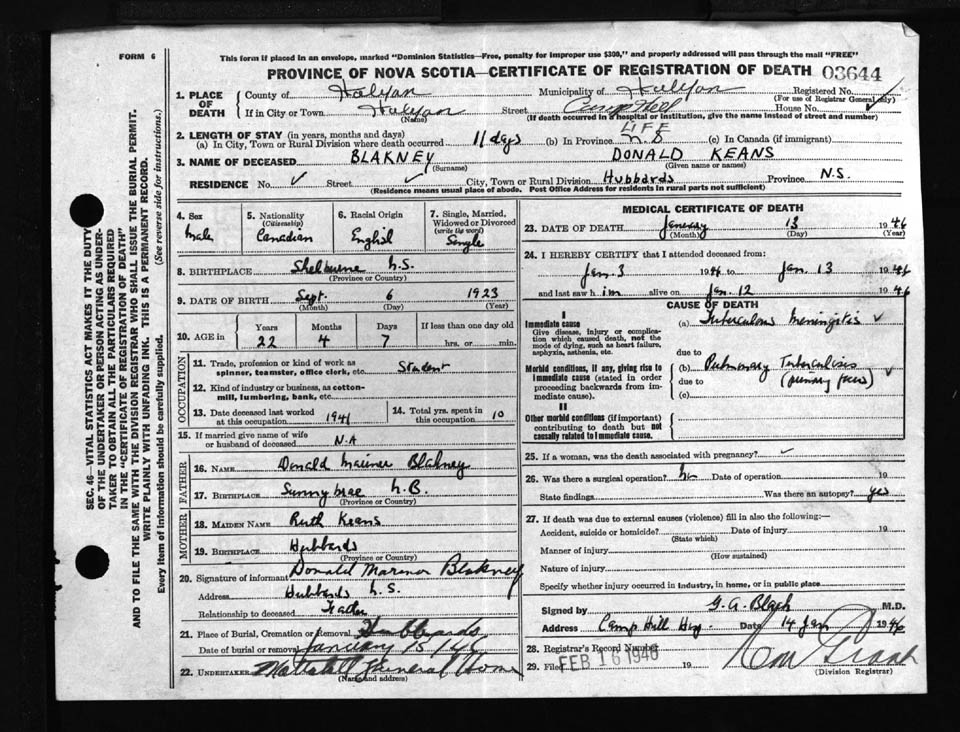 FORM 6
This form if placed in an envelope, marked "Dominion Statistics—Free, penalty for improper use $300," and properly addressed will pass through the mail "FREE"
PROVINCE OF NOVA SCOTIA—CERTIFICATE OF REGISTRATION OF DEATH 03644
1. PLACE OF DEATH
County of Halifax Municipality of Halifax Registered No.
(For use of Registrar General only)
If in City or Town Halifax Street Camp Hill House No. ✓
(Name) (If death occurred in a hospital or institution, give the name instead of street and number)
2. LENGTH OF STAY (in years, months and days)
(a) In City, Town or Rural Division where death occurred 11 days (b) In Province LIFE (c) In Canada (if immigrant)
3. NAME OF DECEASED BLAKNEY DONALD KEANS
(Surname) (Given name or names)
RESIDENCE No. ✓ Street ✓ City, Town or Rural Division Hubbards Province N.S.
(Residence means usual place of abode. Post Office Address for residents in rural parts not sufficient)
4. Sex
Male
5. Nationality (Citizenship)
Canadian
6. Racial Origin
English
7. Single, Married, Widowed or Divorced (write the word)
Single
8. BIRTHPLACE Shelburne N.S.
(Province or Country)
9. DATE OF BIRTH Sept. 6 1923
(Month) (Day) (Year)
10. AGE in Years Months Days If less than one day old
22 4 7 hrs. or min.
OCCUPATION
11. Trade, profession or kind of work as spinner, teamster, office clerk, etc. Student
12. Kind of industry or business, as cotton-mill, lumbering, bank, etc.
13. Date deceased last worked at this occupation 1941
14. Total yrs. spent in this occupation 10
15. If married give name of wife or husband of deceased N.A
FATHER
16. NAME Donald Mariner Blakney
17. BIRTHPLACE Sunny brae N.B.
(Province or Country)
MOTHER
18. MAIDEN NAME Ruth Keans
19. BIRTHPLACE Hubbards
(Province or Country)
20. Signature of informant Donald Marinor Blakney
Address Hubbards N.S.
Relationship to deceased Father
21. Place of Burial, Cremation or Removal Hubbards
Date of burial or removal January 15
22. UNDERTAKER Funeral Home
(Name and address)
MEDICAL CERTIFICATE OF DEATH
23. DATE OF DEATH January 13 1946
(Month) (Day) (Year)
24. I HEREBY CERTIFY that I attended deceased from:
Jan. 3 1946 to Jan. 13 1946
and last saw him alive on Jan. 12 1946
CAUSE OF DEATH
I
Immediate cause
Give disease, injury or complication which caused death, not the mode of dying, such as heart failure, asphyxia, asthenia, etc.
(a) Tuberculous Meningitis ✓
due to
Morbid conditions, if any, giving rise to immediate cause (stated in order proceeding backwards from immediate cause).
(b) Pulmonary Tuberculosis
due to (primary focus) ✓
(c)
II
Other morbid conditions (if important) contributing to death but not causally related to immediate cause.
25. If a woman, was the death associated with pregnancy? ✓
26. Was there a surgical operation? No Date of operation 19
State findings Was there an autopsy? yes
27. If death was due to external causes (violence) fill in also the following:—
Accident, suicide or homicide? Date of injury 19
(State which)
Manner of injury
(How sustained)
Nature of injury
Specify whether injury occurred in industry, in home, or in public place
Signed by G. A. Black M.D.
Address Camp Hill Hosp. Date 14 Jan 1946
28. Registrar's Record Number
29. Filed FEB 16 1946 19
(Division Registrar)
SEC. 46—VITAL STATISTICS ACT MAKES IT THE DUTY
OF THE UNDERTAKER OR PERSON ACTING AS UNDER-
TAKER TO OBTAIN ALL THE PARTICULARS REQUIRED
IN THE "CERTIFICATE OF REGISTRATION OF DEATH"
AND TO FILE THE SAME WITH THE DIVISION REGISTRAR WHO SHALL ISSUE THE BURIAL PERMIT.
WRITE PLAINLY WITH UNFADING INK. THIS IS A PERMANENT RECORD.
Every item of information should be carefully supplied. (See reverse side for instructions.)